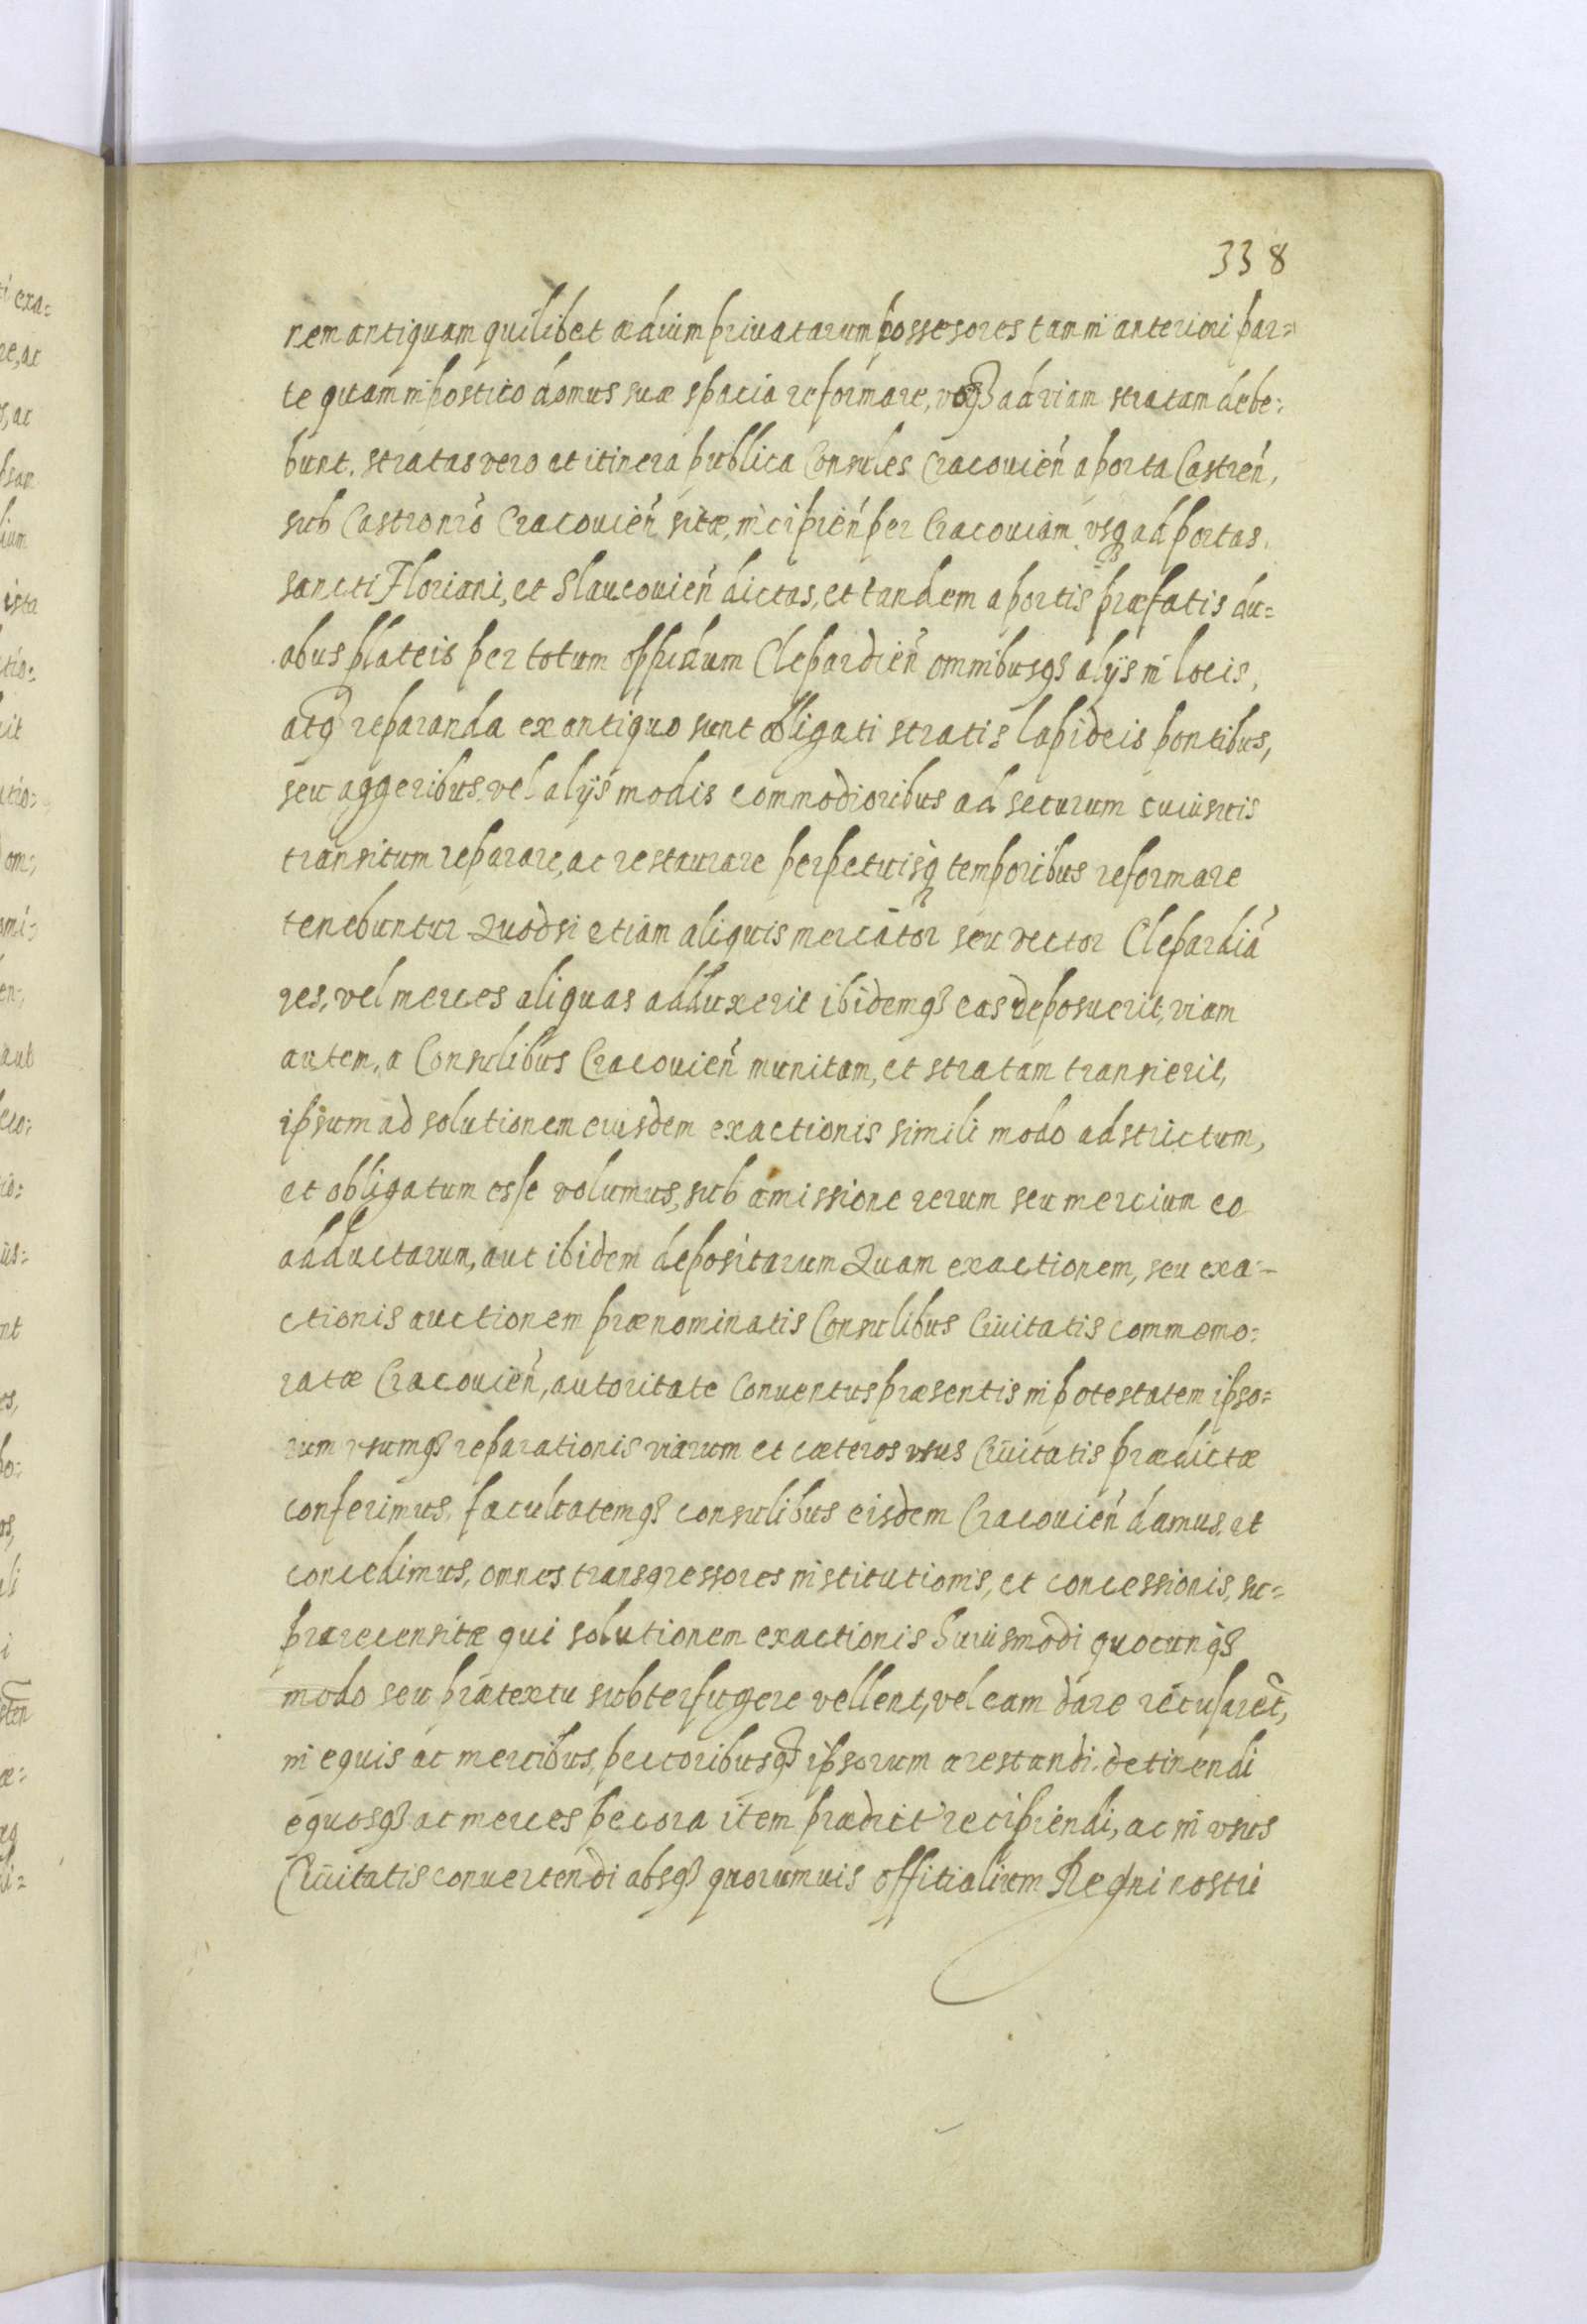 338
nem antiquam quilibet ædium priuatarum possesores tam in anteriori par=
te quam in postico domus suæ spacia reformare, vsq3 ad viam stratam debe=
bunt. stratas vero et itinera publica Consules Cracouien̄ a porta Castren̄,
sub Castro nr̄o Cracouien̄ sitæ, incipien̄ per Cracouiam vsq3 ad portas
sancti Floriani, et Slaucouien̄ dictas, et tandem a portis præfatis du=
abus plateis per totum oppidum Clepardien̄ omnibusq3 alijs in locis,
atq3 reparanda ex antiquo sunt obligati stratis lapideis pontibus,
seu aggeribus vel alijs modis commodioribus ad securum cuiusuis
transitum reparare, ac restaurare perpetuisq3 temporibus reformare
tenebuntur Quodsi etiam aliquis mercator seu vector Clepardiā
res, vel merces aliquas adduxerit ibidemq3 eas deposuerit, viam
autem, a Consulibus Cracouien̄ munitam, et stratam transierit,
ipsum ad solutionem eiusdem exactionis simili modo adstrictum,
et obligatum esse volumus, sub amissione rerum seu mercium eo
adductarum, aut ibidem depositarum Quam exactionem, seu exa=
ctionis auctionem prænominatis Consulibus Ciuitatis commemo=
ratæ Cracouien̄, autoritate Conuentus præsentis in potestatem ipso=
rum vsumq3 reparationis viarum et cæteros vsus Ciuitatis prædictæ
conferimus, facultatemq3 consulibus eisdem Cracouien̄ damus, et
concedimus, omnes transgressores institutionis, et concessionis, su=
prarecensitæ qui solutionem exactionis huiusmodi quocunq3
modo seu prætextu subterfugere vellent, vel eam dare recusarēt,
in equis ac mercibus, pectoribusq3 ipsorum arestandi, detinendi
equosq3 ac merces pecora item prædict recipiendi, ac in vsus
Ciuitatis conuertendi absq3 quorumuis offitialium Regni nostri